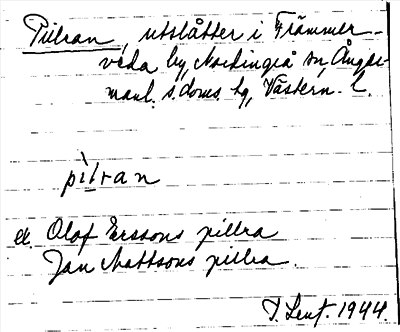 Pillran, utslåtter i Främmer-
veda by, Nordingrå sn, Ånger-
manl. s. doms. hg, Västern. l.
pìlran
ex. Olof Erssons pillra
Jan Mattsons pillra.
T. Lent. 1944.